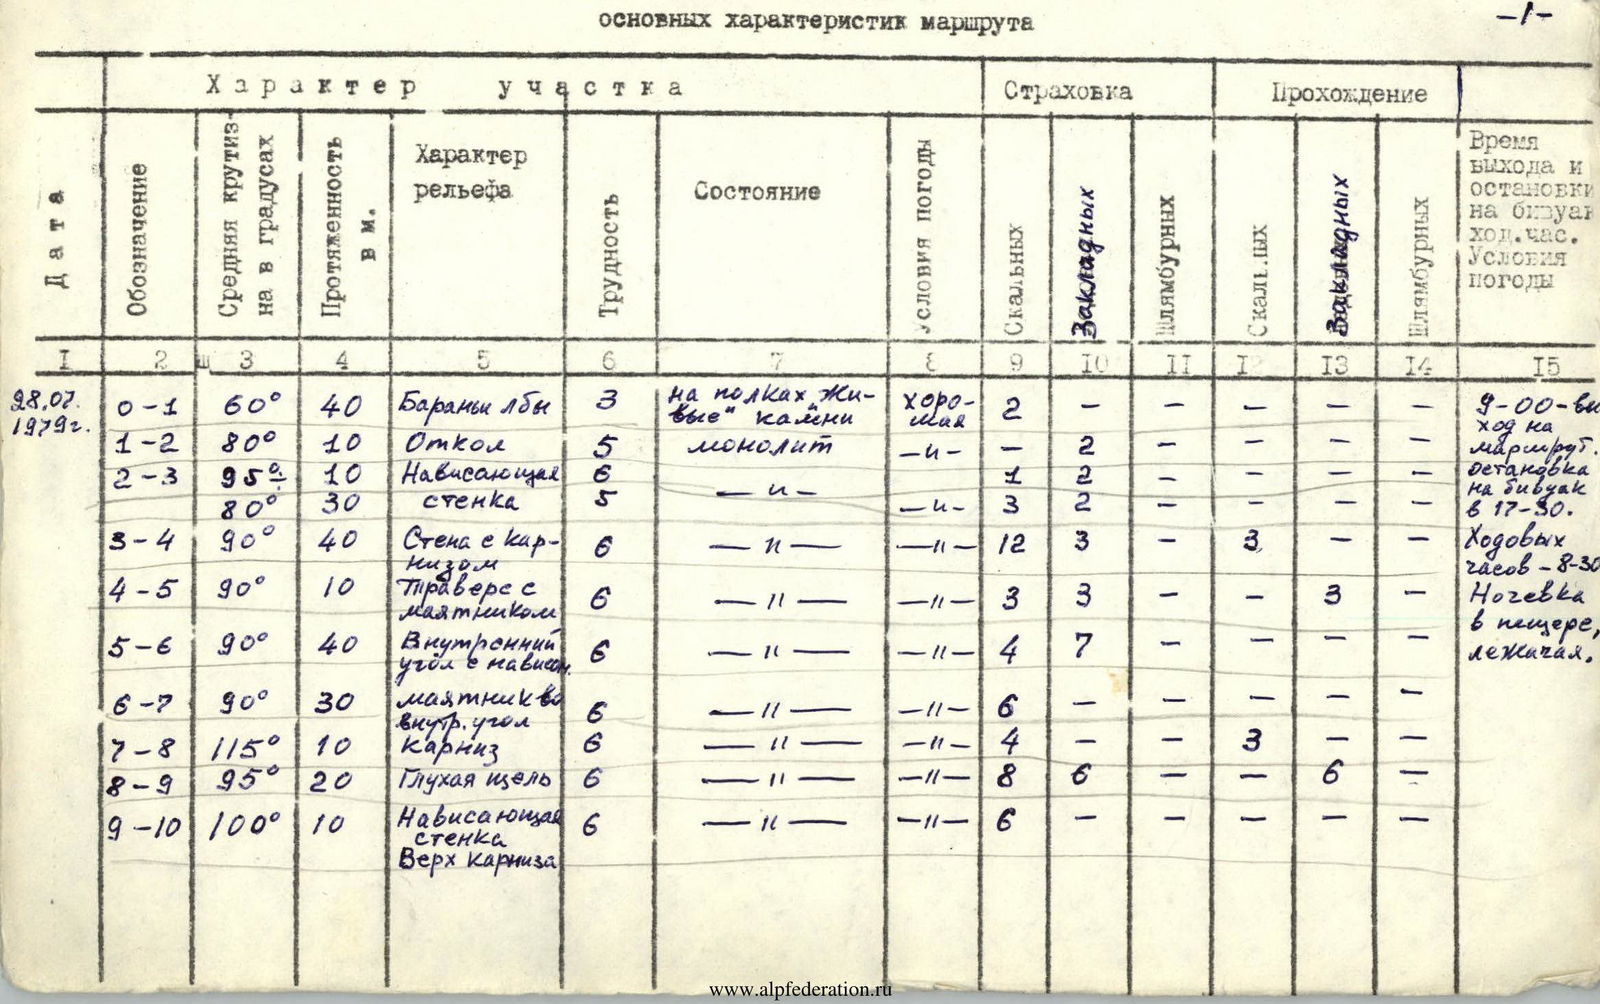 основных характеристик маршрута
-1-
Характер участка
Страховка
Прохождение
Дата
Обозначение
Средняя крутиз-
на в градусах
Протяженность
в м.
Характер
рельефа
Трудность
Состояние
Условия погоды
Скальных
Закладных
Шлямбурных
Скальных
Закладных
Шлямбурных
Время
выхода и
остановки
на бивуак
ход.час.
Условия
погоды
I 2 3 4 5 6 7 8 9 10 11 12 13 14 15
28.07.
1979г.
0-1 60° 40 Бараньи лбы 3 на полках „Жи-
вые" камни хоро-
шая 2 — — — — —
1-2 80° 10 Откол 5 монолит —и— — 2 — — — —
2-3 95°÷ 10 Нависающая 6 —и— 1 2 — — — —
80° 30 стенка 5 —и— 3 2 — — — —
3-4 90° 40 Стена с кар-
низом 6 —"— —"— 12 3 — 3 — —
4-5 90° 10 Траверс с
маятником 6 —"— —"— 3 3 — — 3 —
5-6 90° 40 Внутренний
угол с нависан. 6 —"— —"— 4 7 — — — —
6-7 90° 30 маятник во
внутр. угол 6 —"— —"— 6 — — — — —
7-8 115° 10 Карниз 6 —"— —"— 4 — — 3 — —
8-9 95° 20 Глухая щель 6 —"— —"— 8 6 — — 6 —
9-10 100° 10 Нависающая
стенка
Верх карниза 6 —"— —"— 6 — — — — —
9-00-вы
ход на
маршрут.
остановка
на бивуак
в 17-30.
Ходовых
часов-8-30
Ночевка
в пещере,
лежачая.
www.alpfederation.ru